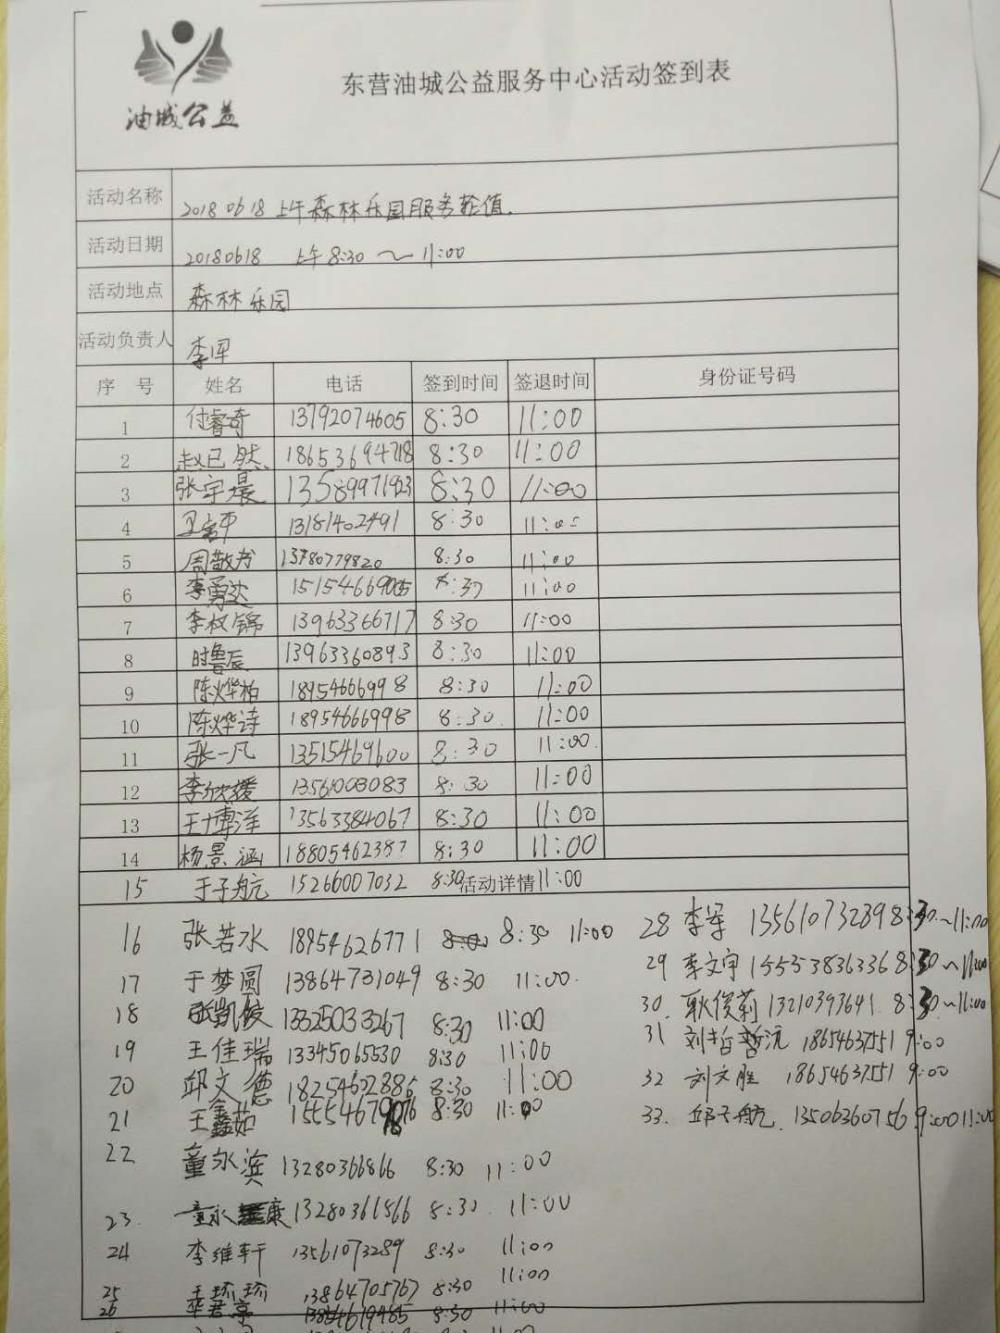 油城公益
东营油城公益服务中心活动签到表
活动名称 2018 06 18 上午森林乐园服务轮值.
活动日期 20180618 上午 8:30 ～ 11:00
活动地点 森林乐园
活动负责人 李军
序 号 姓名 电话 签到时间 签退时间 身份证号码
1 付睿奇 13792074605 8:30 11:00
2 赵已然 18653694718 8:30 11:00
3 张宇晨 8:30 11:00
4 13181402491 8:30 11:00
5 周敬书 13780779820 8:30 11:00
6 李勇达 15154669005 8:30 11:00
7 李权锦 13963366717 8:30 11:00
8 时鲁辰 13963360893 8:30 11:00
9 陈烨柏 18954666998 8:30 11:00
10 陈烨诗 18954666998 8:30 11:00
11 张一凡 13515469600 8:30 11:00
12 李欣媛 13561003083 8:30 11:00
13 王博洋 13563384067 8:30 11:00
14 杨景涵 18805462387 8:30 11:00
15 于子航 15266007032 8:30 活动详情 11:00
16 张若水 18954626771 8:30 11:00
17 于梦圆 13864731049 8:30 11:00
18 张凯俊 13325033267 8:30 11:00
19 王佳瑞 13345065530 8:30 11:00
20 邱文德 18254622886 8:30 11:00
21 王鑫茹 8:30 11:00
22 童永滨 13280366866 8:30 11:00
23. 童永康 13280366866 8:30 11:00
24 李维轩 13561073289 8:30 11:00
25 王珎珍 13864705767 8:30 11:00
26 8:30 11:00
28 李军 13561073289 8:30～11:00
29 李文宇 15553836336 8:30～11:00
30. 耿俊莉 13210393641 8:30～11:00
31 刘哲沅 18654637551 9:00
32 刘文胜 18654637551 9:00
33. 邱天航 13506360756 9:00 11:00